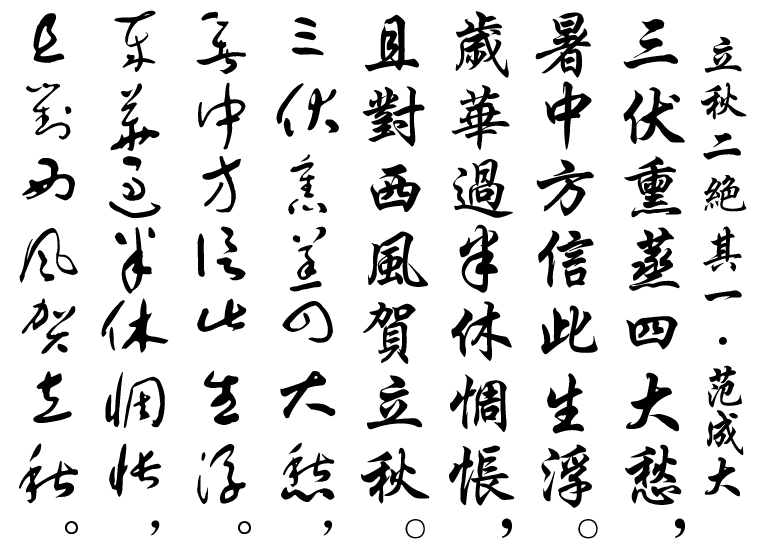 立秋二絕其一·范成大
三伏熏蒸四大愁，
暑中方信此生浮。
歲華過半休惆悵，
且對西風賀立秋。
三伏熏蒸四大愁，
暑中方信此生浮。
歲華過半休惆悵，
且對西風賀立秋。